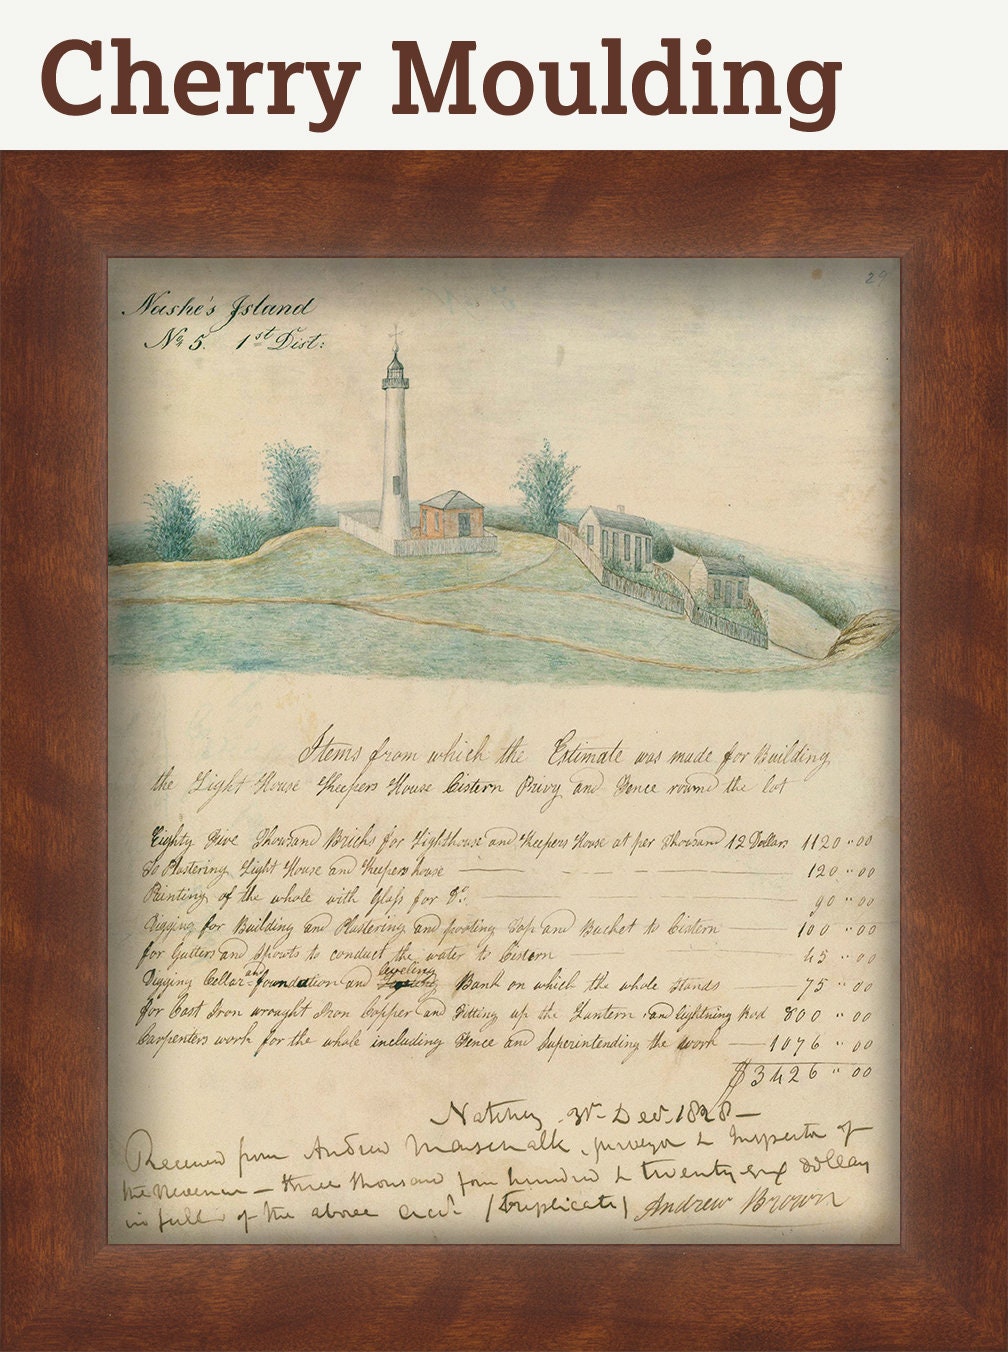 Cherry Moulding
29
Nashe's Island
No 5. 1st Dist:
Items from which the Estimate was made for Building
the Light House Keepers House Cistern Privy and Fence round the lot
Eighty Five Thousand Bricks for Lighthouse and Keepers House at per Thousand 12 Dollars 1120 "00
To Plastering Light House and Keepers house 120 "00
Painting of the whole with Glass for Do. 90 "00
Digging for Building and Plastering and Top and Bucket to Cistern 100 "00
for Gutters and Spouts to conduct the water to Cistern 45 "00
Digging Cellar and foundation and leveling Bank on which the whole stands 75 "00
For Cast Iron wrought Iron Copper and Fitting up the Lantern and lightning Rod 800 "00
Carpenters work for the whole including Fence and Superintending the work 1076 "00
$3426 "00
Natchez Decr. 1828
Received from Andrew Marschalk, surveyor & Inspector of
the Revenue three thousand four hundred & twenty six dollars
in full of the above acct (Triplicate) Andrew Brown